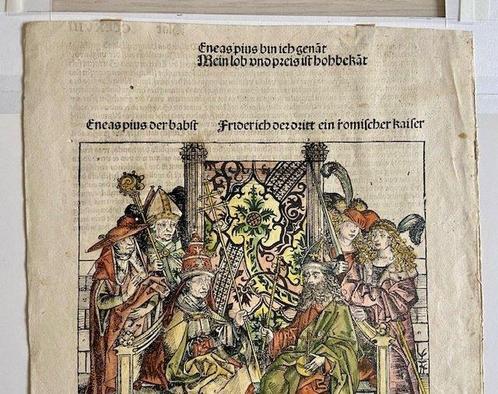 Eneas pius bin ich genãt
Mein lob vnd preis ist hohbekãt
Eneas pius der babst Friderich der dritt ein römischer kaiser